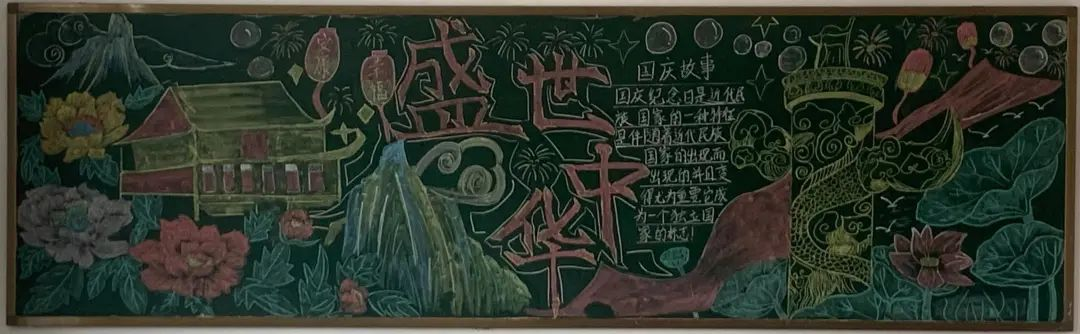 安康
幸福
盛世
中华
国庆故事
国庆纪念日是近代民
族国家的一种特征
是伴随着近代民族
国家的出现而
出现的并且变
得尤为重要它成
为一个独立国
家的标志!